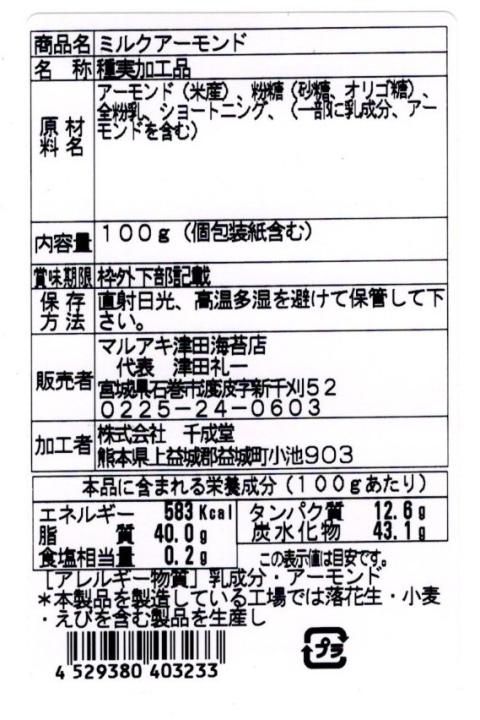 商品名 ミルクアーモンド
名 称 種実加工品
原材料名 アーモンド（米産）、粉糖（砂糖、オリゴ糖）、
全粉乳、ショートニング、（一部に乳成分、アー
モンドを含む）
内容量 １００ｇ（個包装紙含む）
賞味期限 枠外下部記載
保存方法 直射日光、高温多湿を避けて保管して下
さい。
販売者 マルアキ津田海苔店
代表 津田礼一
宮城県石巻市渡波字新千刈５２
０２２５－２４－０６０３
加工者 株式会社 千成堂
熊本県上益城郡益城町小池９０３
本品に含まれる栄養成分（１００ｇあたり）
エネルギー 583 Kcal タンパク質 12.6 g
脂 質 40.0 g 炭水化物 43.1 g
食塩相当量 0.2 g この表示値は目安です。
［アレルギー物質］乳成分・アーモンド
＊本製品を製造している工場では落花生・小麦
・えびを含む製品を生産し
プラ
4 529380 403233